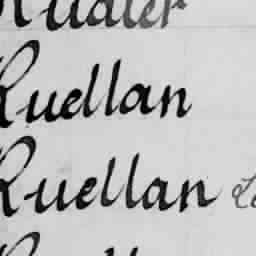 Rudler
Ruellan
Ruellan